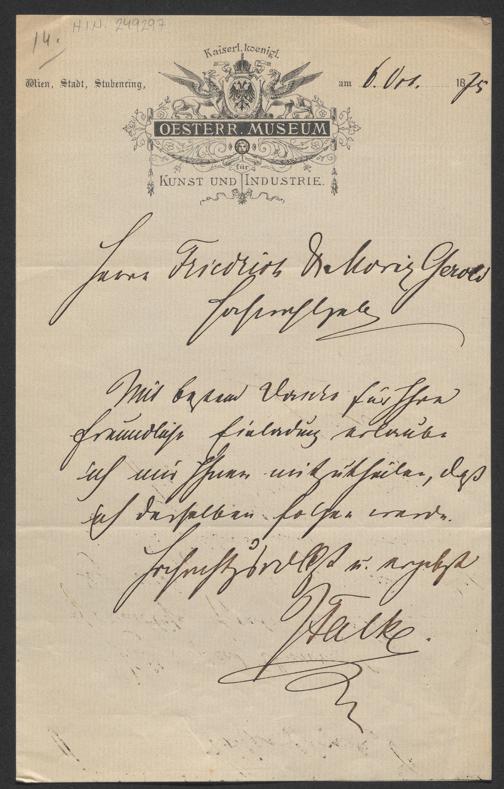 14.
HIN. 249297
Kaiserl. koenigl.
Wien, Stadt, Stubenring,
am 6. Oct. 1875
OESTERR. MUSEUM
für
KUNST UND INDUSTRIE.
Herrn Friedrich & Moriz Gerold
Hochwohlgeb.
Mit bestem Danke für Ihre
freundliche Einladung erlaube
ich mir Ihnen mitzutheilen, daß
ich derselben folgen werde.
Hochachtungsvollst u. ergebenst
JFalke.